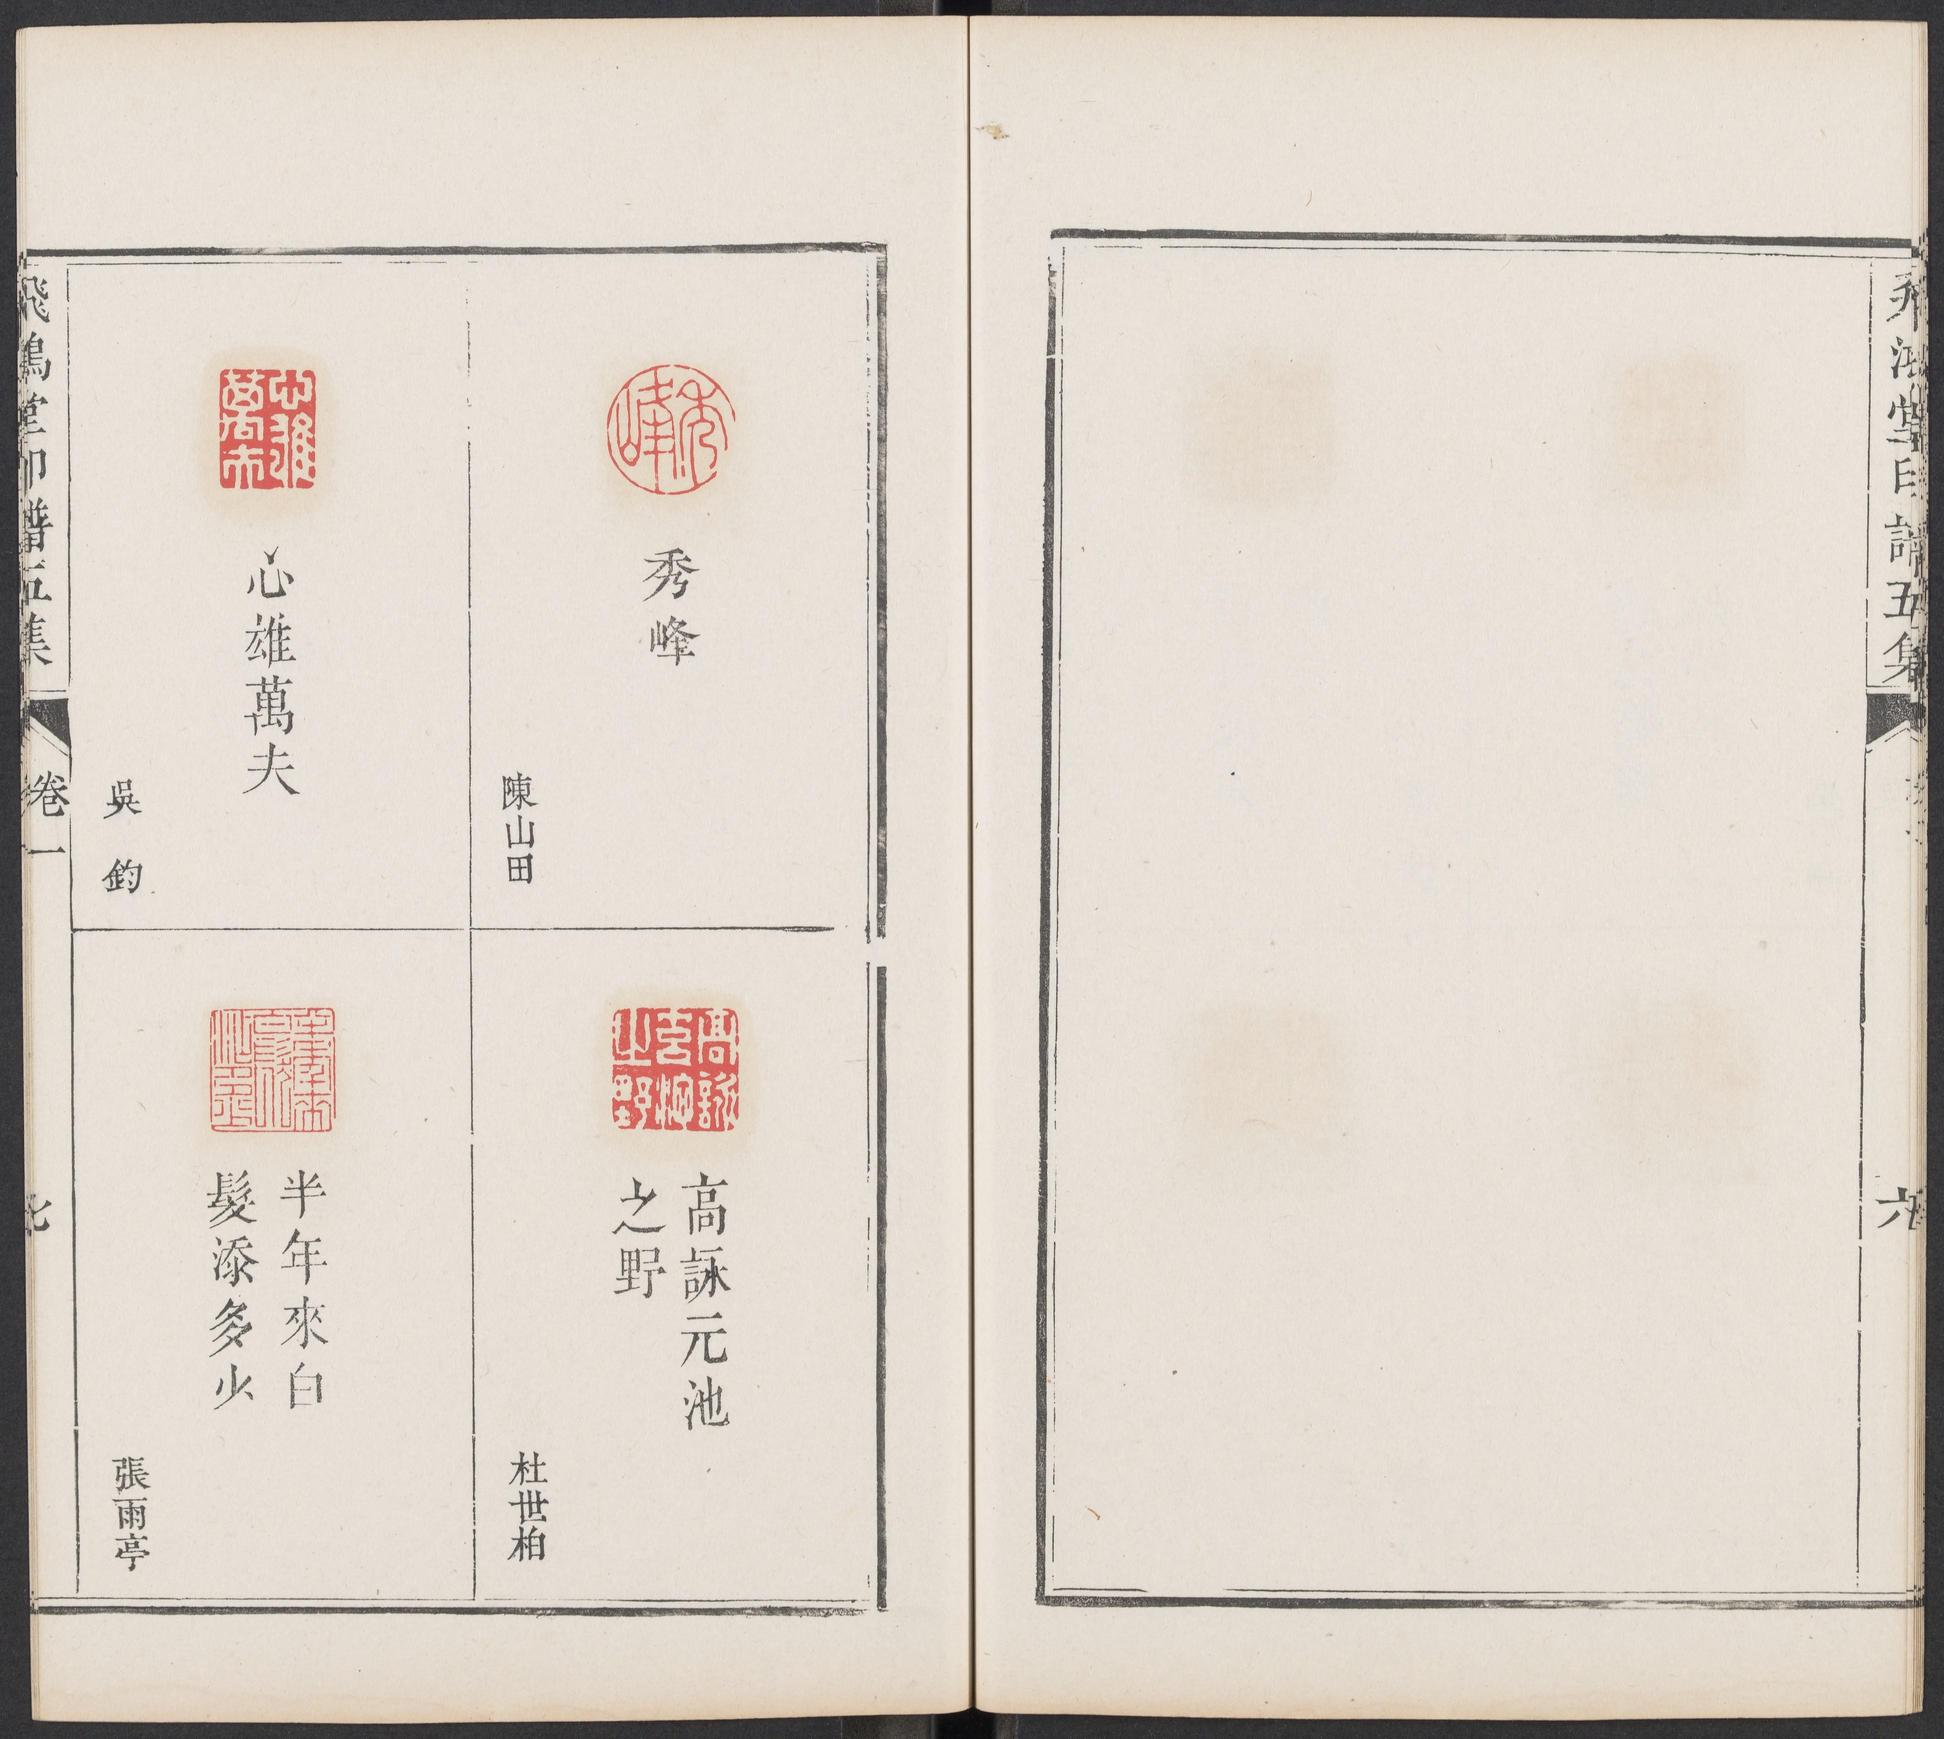 飛鴻堂印譜五集
六
秀峰
陳山田
高詠元池
之野
杜世柏
心雄萬夫
吳鈞
半年來白
髮添多少
張雨亭
飛鴻堂印譜五集
卷一
七